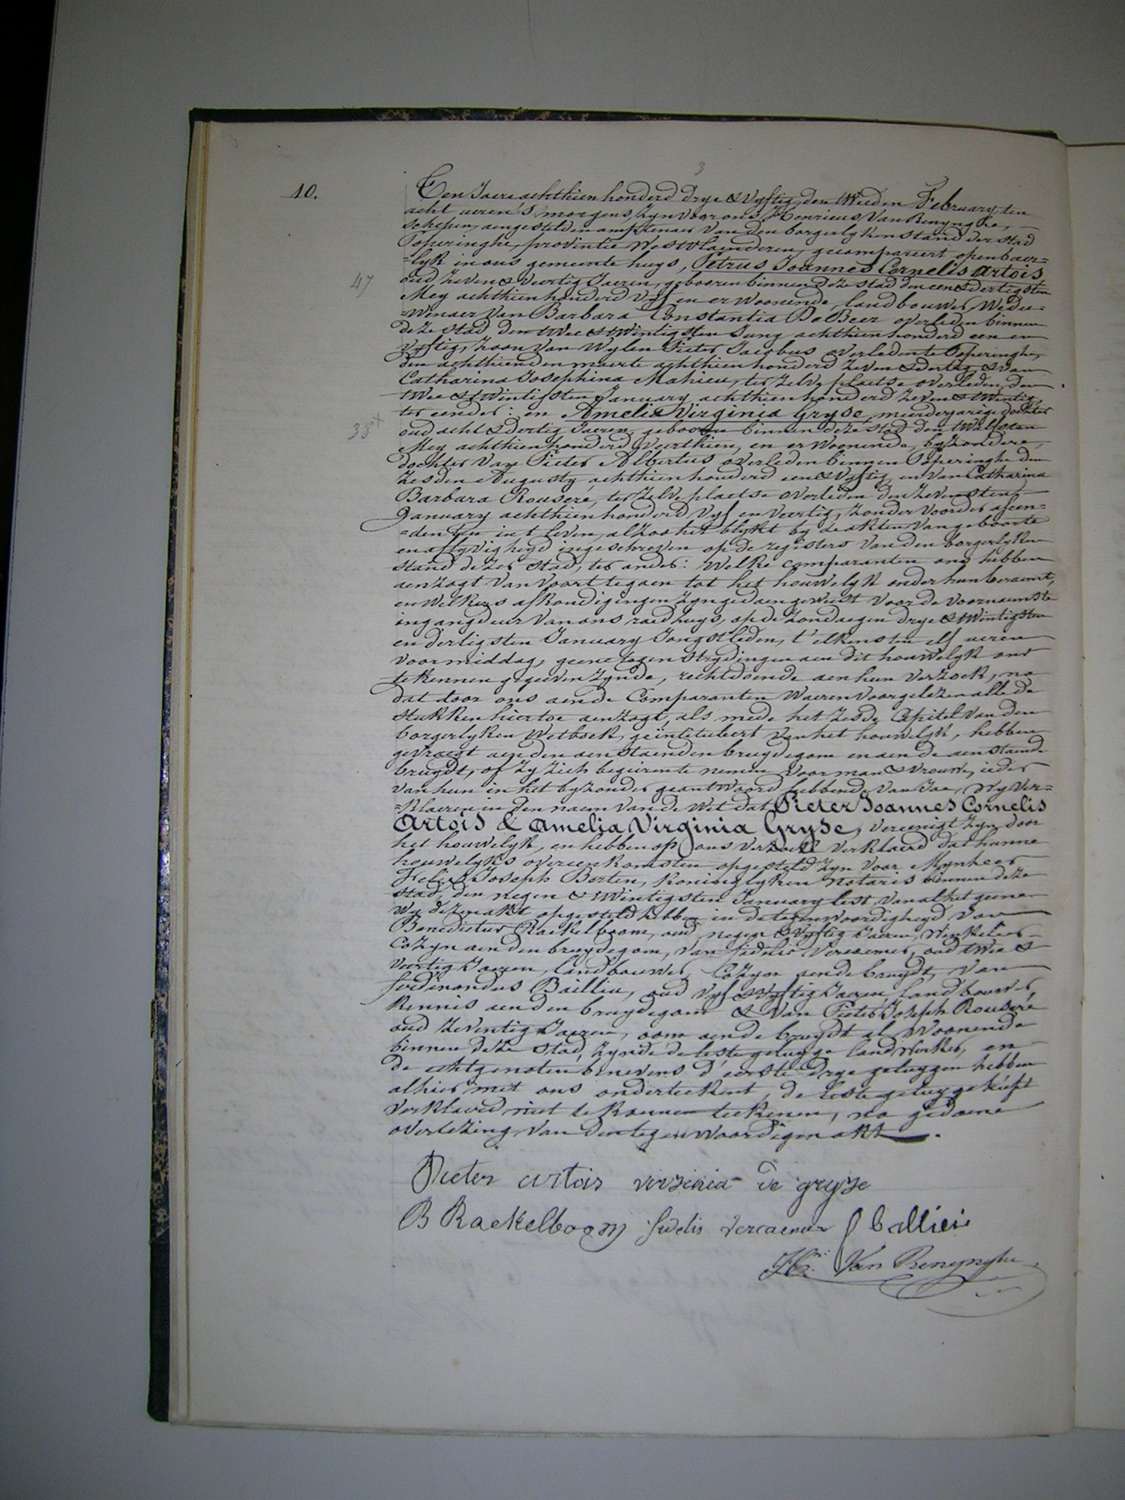 3
10. Een Jaere achthien honderd drye & vyftig, den tweeden February, ten
acht ueren 's morgens, zyn voor ons, Henricus Van Renynghe,
schepen, aengestelden ampttenaer van den borgerlyken stand der stad
Poperinghe, provintie Westvlaenderen, gecompareert openbaer-
-lyk in ons gemeente huys, Petrus Joannes Cornelis Artois
47 oud zeven & veertig Jaeren, gebooren binnen deze stad den een & dertigsten
Mey achthien honderd vyf en er woonende, landbouwer, wedu-
-wenaer van Barbara Constantia De Beer overleden binnen
deze stad den twee & twintigsten Juny achthien honderd een en
vyftig, zoon van wylen Pieter Jacobus overleden te Poperinghe,
den achthienden maerte achthien honderd zeven & dertig, & van
Catharina Josephina Mahieu, ter zelve plaetse overleden, den
twee & twintigsten January achthien honderd zeven & twintig
ter eender: en Amelia Virginia Gryse, meerderjarige dochter
38 oud acht & dertig Jaeren, gebooren binnen deze stad den twelfsten
Mey achthien honderd veerthien, en er woonende, byzondere,
dochter van Pieter Albertus overleden binnen Poperinghe den
zesden Augusty achthien honderd een & vyftig, en van Catharina
Barbara Rouseré, ter zelve plaetse overleden den zevensten
January achthien honderd vyf en veertig, zonder voorder ascen-
-denten in 't leven, alzoo het blykt by de akten van geboorte
en aflyvigheyd ingeschreven op de registers van den borgerlyken
stand dezer stad, ter ander: Welke comparanten ons hebben
aenzogt van voort te gaen tot het houwelyk onder hun beraemt,
en welkers afkondigingen zyn gedaen geweest voor de voornaemste
ingangdeur van ons raedhuys, op de zondaegen drye & twintigsten
en dertigsten January Jongstleden, t'elkens ten elf ueren
voormiddag, geene tegenstrydingen aen dit houwelyk ons
te kennen gegeven zynde, rechtdoende aen hun verzoek, na
dat door ons aen de Comparanten waeren voorgelezen alle de
stukken hiertoe aenzogt, als mede het zesde Capitel van den
borgerlyken Wetboek, geïntituleert van het houwelyk, hebben
gevraegt aen den aenstaenden bruydegom en aen de aenstaende
bruydt, of zy zich begeirente nemen voor man & vrouw, ieder
van hun in het byzonder geantwoord hebbende van Jae, wy ver-
-klaeren in den naem van de Wet dat Pieter Joannes Cornelis
Artois & Amelia Virginia Gryse, vereenigt zyn door
het houwelyk, en hebben op ons verzoek verklaerd dat hunne
houwelyks overeenkomsten opgesteld zyn voor Mynheer
Felix Joseph Berten, koninglyken notaris binnen deze
stad, den negen & twintigsten January lest, van al het geene
wy deze akt opgesteld hebben in de tegenwoordigheyd van
Benedictus Raekelboom, oud negen & vyftig Jaeren, winkelier
Cozyn aen den bruydegom, van Fidelis Vercaemer, oud twee &
veertig Jaeren, landbouwer, Cozyn aen de bruydt, van
Ferdinandus Baillieu, oud vyf & vyftig Jaeren, landbouwer,
kennis aen den bruydegom & van Pieter Joseph Rouseré
oud zeventig Jaeren, oom aen de bruydt al woonende
binnen deze stad, zynde de leste getuyge landwerker, en
de echtgenoten benevens d'eerste drye getuygen hebben
alhier met ons onderteekent, de leste getuyge heeft
verklaerd niet te konnen teekenen, na gedaene
overlezing van den tegenwoordigen akt.
Pieter artois virginia de gryse
B Raekelboom fidelis vercaemer f balliei
Hri Van Renynghe